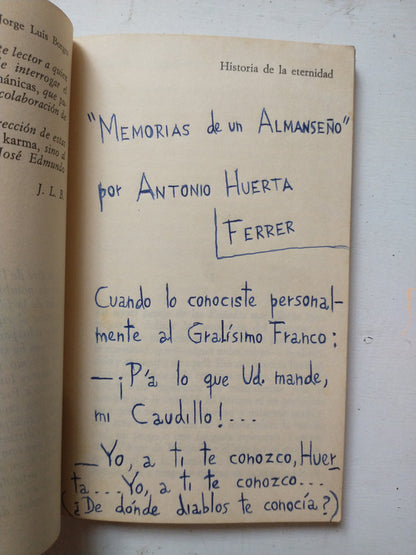 Jorge Luis Borges
te lector a quien
de interrogar el
mánicas, que pu
colaboración de
rrección de estas
karma, sino al
José Edmundo
J. L. B.
Historia de la eternidad
"MEMORIAS de un ALMANSEÑO"
por ANTONIO HUERTA
FERRER
Cuando lo conociste personal-
mente al Gralísimo Franco:
—¡P'a lo que Ud. mande,
mi Caudillo!...
—Yo, a ti te conozco, Huer-
ta... Yo, a ti te conozco...
(¿De dónde diablos te conocía?)